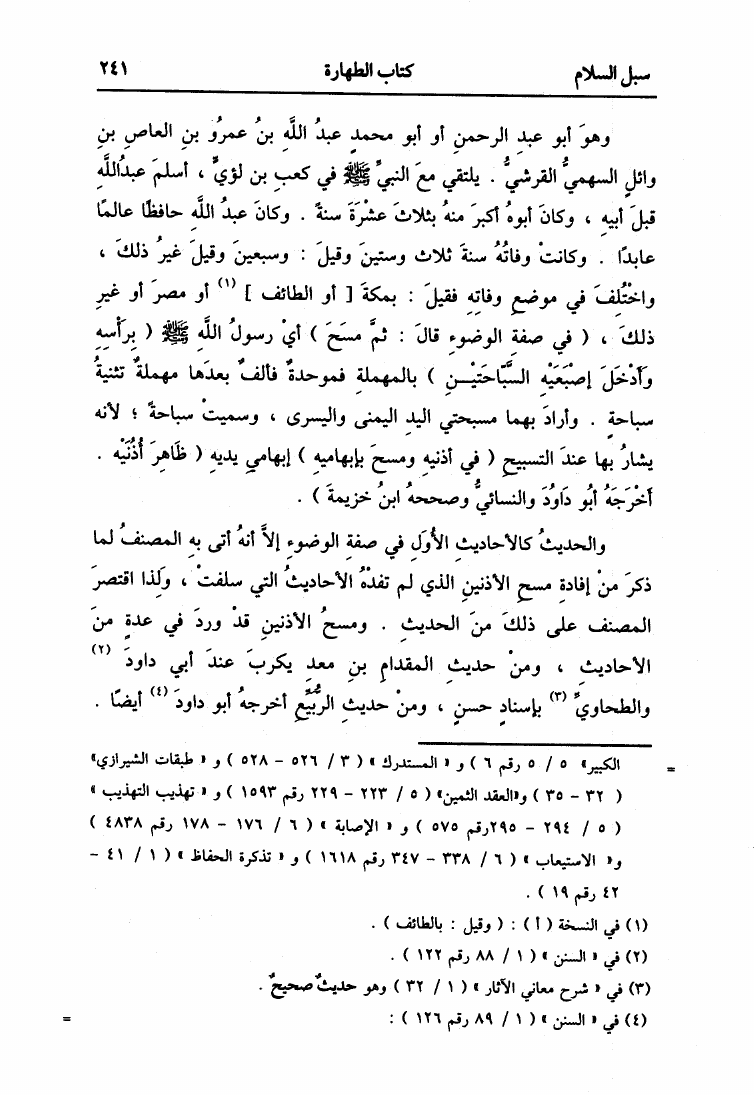 سبل السلام كتاب الطهارة ٢٤١
وهوَ أبو عبدِ الرحمنِ أو أبو محمدٍ عبدُ اللَّهِ بنُ عمرُو بنِ العاصِ بنِ
وائلٍ السهميُّ القرشيُّ . يلتقي معَ النبيِّ ﷺ في كعبِ بن لؤيٍّ ، أسلمَ عبدُاللَّهِ
قبلَ أبيهِ ، وكانَ أبوهُ أكبرَ منهُ بثلاثَ عشْرَةَ سنةً . وكانَ عبدُ اللَّهِ حافظًا عالمًا
عابدًا . وكانتْ وفاتُهُ سنةَ ثلاث وستينَ وقيلَ : وسبعينَ وقيلَ غيرُ ذلكَ ،
واخْتُلِفَ في موضعِ وفاتِهِ فقيلَ : بمكةَ [ أو الطائف ] (١) أو مصرَ أو غيرِ
ذلكَ ، ( في صفةِ الوضوءِ قالَ : ثمَّ مسَحَ ) أيْ رسولُ اللَّهِ ﷺ ( بِرَأْسِهِ
وَأَدْخَلَ إِصْبَعَيْهِ السَّبَّاحَتَيْـــنِ ) بالمهملةِ فموحدةٌ فألفٌ بعدَها مهملةٌ تثنيةُ
سباحةٍ . وأرادَ بهما مسبحتي اليدِ اليمنى واليسرى ، وسميتْ سباحةً ؛ لأنه
يشارُ بها عندَ التسبيحِ ( في أذنيهِ ومسحَ بإبهاميهِ ) إبهامي يديهِ ( ظَاهِرَ أُذُنَيْهِ .
أَخْرَجَهُ أبُو دَاوُدَ والنسائيُّ وصححهُ ابنُ خزيمةَ ) .
والحديثُ كالأحاديثِ الأُولِ في صفةِ الوضوءِ إلاَّ أنهُ أتى بهِ المصنفُ لما
ذكرَ منْ إفادةِ مسحِ الأذنينِ الذي لم تفدْهُ الأحاديثُ التي سلفتْ ، ولذا اقتصرَ
المصنف على ذلكَ منَ الحديثِ . ومسحُ الأذنينِ قدْ وردَ في عدةٍ منَ
الأحاديثِ ، ومنْ حديثِ المقدامِ بنِ معدِ يكربَ عندَ أبي داودَ (٢)
والطحاويِّ (٣) بإسنادٍ حسنٍ ، ومنْ حديثِ الرُّبَيِّعِ أخرجهُ أبو داودَ (٤) أيضًا .
= الكبير» ٥ / ٥ رقم ٦ ) و « المستدرك » ( ٣ / ٥٢٦ - ٥٢٨ ) و « طبقات الشيرازي»
( ٣٢ - ٣٥ ) و«العقد الثمين» ( ٥ / ٢٢٣ - ٢٢٩ رقم ١٥٩٣ ) و « تهذيب التهذيب »
( ٥ / ٢٩٤ - ٢٩٥رقم ٥٧٥ ) و « الإصابة » ( ٦ / ١٧٦ - ١٧٨ رقم ٤٨٣٨ )
و« الاستيعاب » ( ٦ / ٣٣٨ - ٣٤٧ رقم ١٦١٨ ) و « تذكرة الحفاظ » ( ١ / ٤١ -
٤٢ رقم ١٩ ) .
(١) في النسخة ( أ ) : ( وقيل : بالطائف ) .
(٢) في « السنن » ( ١ / ٨٨ رقم ١٢٢ ) .
(٣) في « شرح معاني الآثار » ( ١ / ٣٢ ) وهو حديثٌ صحيحٌ .
(٤) في « السنن » ( ١ / ٨٩ رقم ١٢٦ ) : =